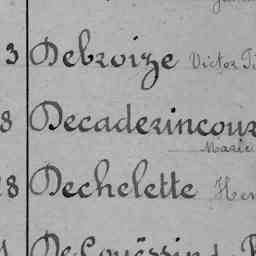 3 Debroize Victor
8 Decaderincour
Marie
28 Dechelette Hen